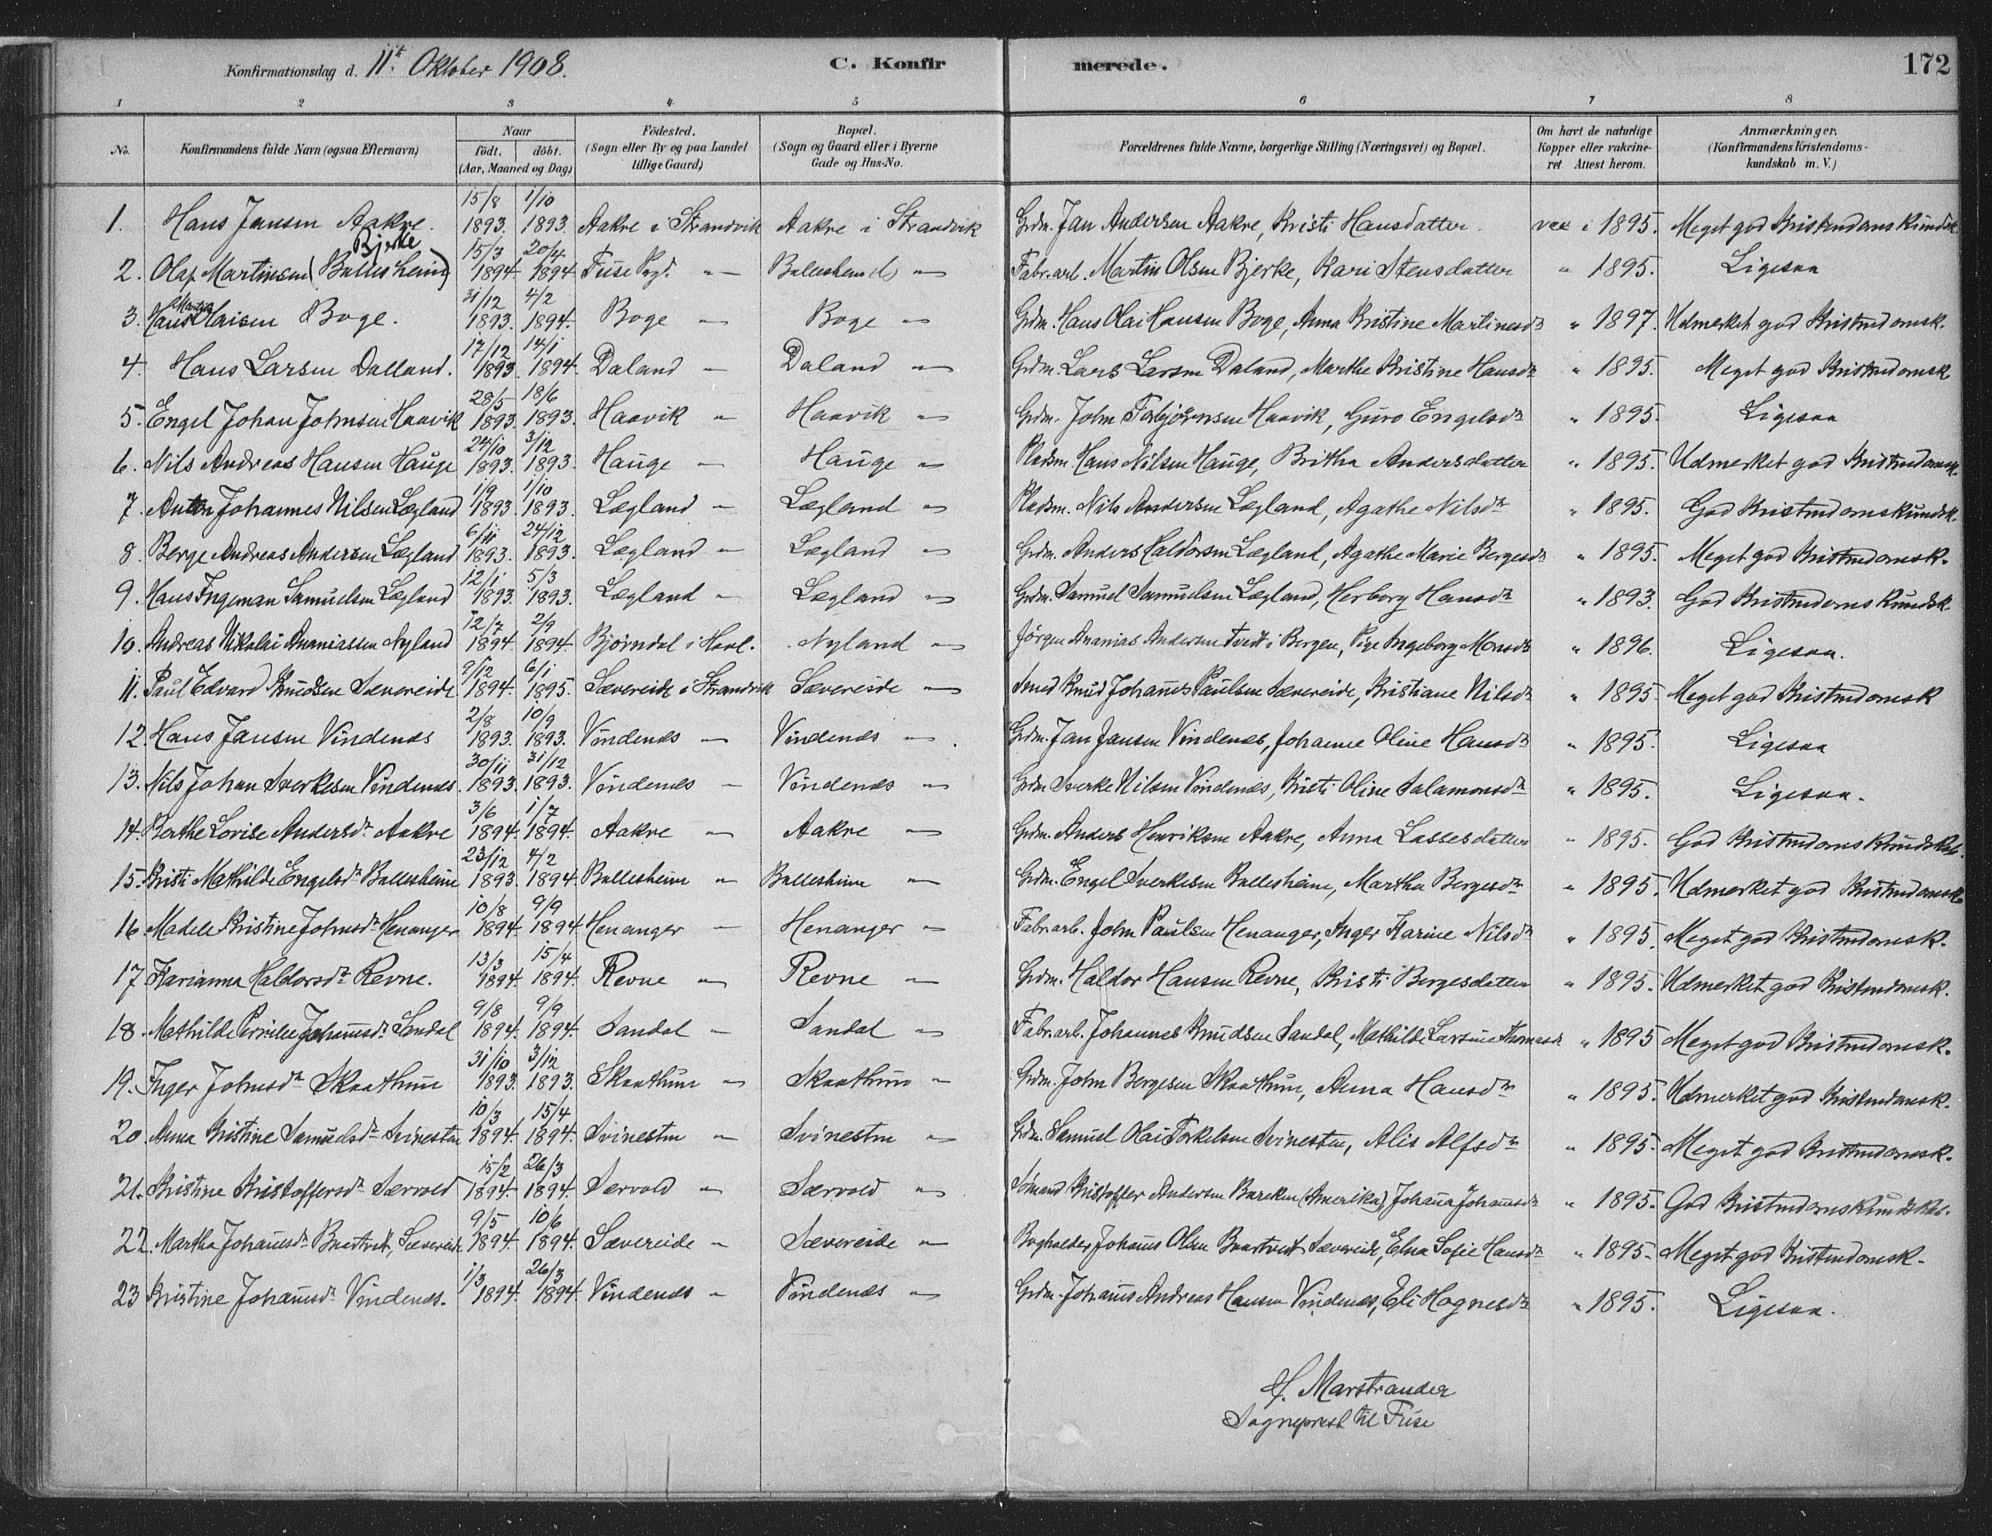 Konfirmationsdag d. 11t Oktober 1908. C. Konfirmerede. 172
1 2 3 4 5 6 7 8
No. Konfirmandens fulde Navn (ogsaa Efternavn) Naar født. døbt. (Aar, Maaned og Dag) Fødested. (Sogn eller By og paa Landet tillige Gaard) Bopæl. (Sogn og Gaard eller i Byerne Gade og Hus-No. Forældrenes fulde Navne, borgerlige Stilling (Næringsvei) og Bopæl. Om havt de naturlige Kopper eller vakcineret Attest herom. Anmærkninger. (Konfirmandens Kristendomskundskab m. V.)
1. Hans Jansen Aakre. 15/8 1893. 1/10 1893. Aakre i Strandvik Aakre i Strandvik Grdm. Jan Andersen Aakre, Kristi Hansdatter. vac i 1895. Meget god Kristendomskundsk.
2. Olaf Martinsen (Ballesheim) Bjerke 15/3 1894 20/4 1894 Fuse Pgd. " Ballesheim " Fabr.arb. Martin Olsen Bjerke, Kari Stensdatter " 1895. Ligesaa
3. Hans Martin Olaisen Boge. 31/12 1893. 4/2 1894. Boge " Boge " Grdm. Hans Olai Hansen Boge, Anna Kristine Martinesdr " 1897. Udmerket god Kristendomsk.
4. Hans Larsen Dalland. 17/12 1893 14/1 1894. Daland " Daland " Grdm. Lars Larsen Daland, Marthe Kristine Hansdr " 1895. Meget god Kristendomsk
5. Engel Johan Johnsen Haavik 28/5 1893. 18/6 1893. Haavik " Haavik " Grdm. John Torbjørnsen Haavik, Guro Engelsdr " 1895. Ligesaa
6. Nils Andreas Hansen Hauge 24/10 1893. 3/12 1893. Hauge " Hauge " Pladsm. Hans Nilsen Hauge, Britha Andersdatter " 1895. Udmerket god Kristendomsk.
7. Anton Johannes Nilsen Lægland 1/9 1893 1/10 1893. Lægland " Lægland " Pladsm. Nils Andersen Lægland, Agathe Nilsdr " 1895. God Kristendomskundsk.
8. Berge Andreas Andersen Lægland 6/11 1893. 24/12 1893. Lægland " Lægland " Grdm. Anders Haldorsen Lægland, Agathe Marie Bergesdr " 1895. Meget god Kristendomsk.
9. Hans Ingeman Samuelsen Lægland 12/1 1893. 5/3 1893. Lægland " Lægland " Grdm. Samuel Samuelsen Lægland, Herborg Hansdr " 1893. God Kristendomskundsk
10. Andreas Nikolai Ananiassen Nyland 12/7 1894. 2/9 1894. Bjørndal i Haal. Nyland " Jørgen Ananias Andersen Tvedt i Bergen, Pige Ingeborg Monsdr " 1896. Ligesaa.
11. Paul Edvard Knudsen Sævereide 9/12 1894. 6/1 1895. Sævereide i Strandvik Sævereide " Smed Knud Johannes Paulsen Sævereide, Kristiane Nilsdr " 1895 Meget god Kristendomsk
12. Hans Jansen Vindenæs 2/8 1893. 10/9 1893. Vindenæs " Vindenæs " Grdm. Jan Jansen Vindenæs, Johanne Oline Hansdr " 1895. Ligesaa
13. Nils Johan Sverkesen Vindenæs. 30/11 1893. 31/12 1893. Vindenæs " Vindenæs " Grdm Sverke Nilsen Vindenæs, Kristi Oline Salamonsdr " 1895. Ligesaa.
14. Berthe Lovise Andersdr Aakre 3/6 1894. 1/7 1894. Aakre " Aakre " Grdm. Anders Henriksen Aakre, Anna Lassesdatter " 1895. God Kristendomskundskab.
15. Kristi Mathilde Engelsdr Ballesheim 23/12 1893. 4/2 1894. Ballesheim " Ballesheim " Grdm. Engel Sverkesen Ballesheim, Martha Bergesdr " 1895. Udmerket god Kristendomsk
16. Madele Kristine Johnsdr Henanger 10/8 1894. 9/9 1894. Henanger " Henanger " Fabr.arb. John Paulsen Henanger, Inger Karine Nilsdr " 1895. Meget god Kristendomsk.
17. Karianna Haldorsdr Revne. 13/3 1894. 15/4 1894. Revne " Revne " Grdm. Haldor Hansen Revne, Kristi Bergesdatter " 1895. Udmerket god Kristendomsk.
18. Mathilde Pernille Johannesdr Sandal 9/8 1894. 9/9 1894. Sandal " Sandal " Fabr.arb. Johannes Knudsen Sandal, Mathilde Larsine Thomasdr " 1895 Meget god Kristendomsk.
19. Inger Johnsdr Skaathun 31/10 1893. 3/12 1893. Skaathun " Skaathun " Grdm. John Bergesen Skaathun, Anna Hansdr " 1895. Udmerket god Kristendomsk.
20. Anna Kristine Samuelsdr Svinesten 10/3 1894. 15/4 1894. Svinesten " Svinesten " Grdm. Samuel Olai Torkelsen Svinesten, Alis Alfsdr " 1895. Meget god Kristendomsk.
21. Kristine Kristoffersdr Særvold 15/2 1894 26/3 1894. Særvold " Særvold " Sømand Kristoffer Andersen Barcken (Amerika), Johanna Johannesdr " 1895. God Kristendomskundskab.
22. Martha Johannesdr Baartvet, Sævereide 9/5 1894. 10/6 1894. Sævereide " Sævereide " Bogholder Johannes Olsen Baartveit Sævereide, Elna Sofie Hansdr " 1895. Meget god Kristendomsk.
23 Kristine Johannesdr Vindenæs. 1/3 1894. 26/3 1894. Vindenæs " Vindenæs " Grdm. Johannes Andreas Hansen Vindenæs, Eli Hognesdr " 1895. Ligesaa.
H. Marstrander
Sogneprest til Fuse